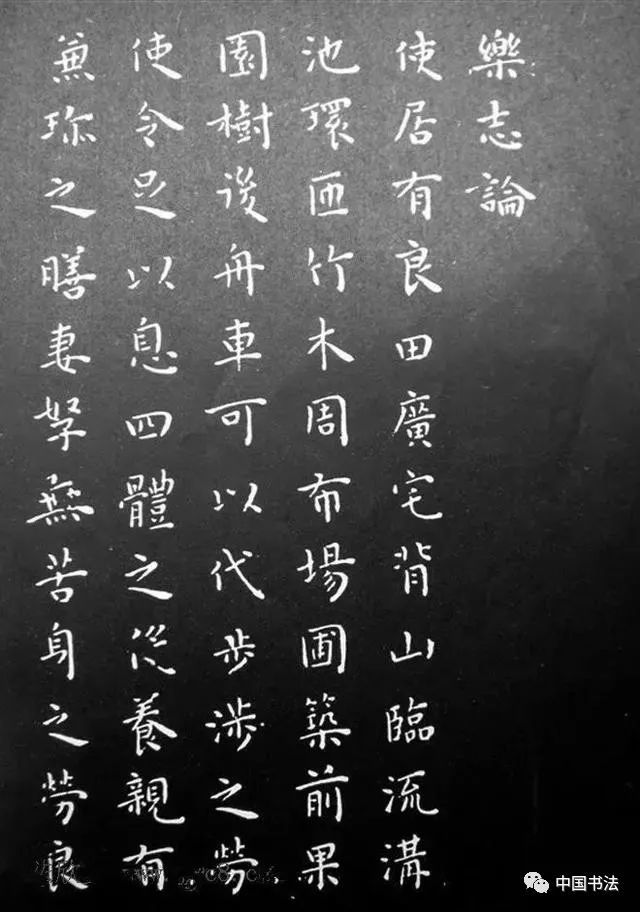 樂志論
使居有良田廣宅背山臨流溝
池環匝竹木周布場圃築前果
園樹後舟車可以代步涉之勞
使令足以息四體之役養親有
兼珍之膳妻孥無苦身之勞良
中国书法